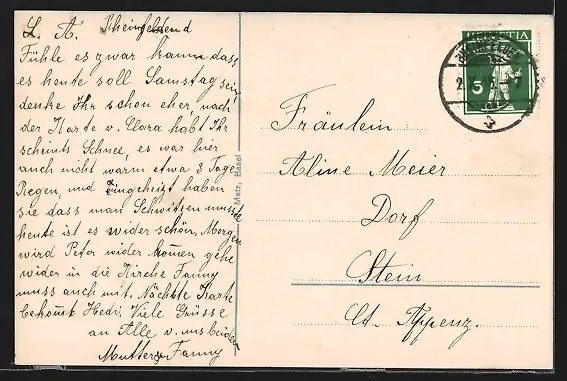 L. A. Rheinfelden d
Fühle es zwar kaum dass
es heute soll Samstag sein
denke Ihr schon eher, nach
der Karte v. Clara habt Ihr
scheints Schnee, es war hier
auch nicht warm etwa 3 Tage
Regen, und Eingeheizt haben
sie dass man Schwitzen musste
heute ist es wider schön. Morgen
wird Peter wider kom̅en gehe
wider in die Kirche Fanny
muss auch mit. Nächste Karte
bekom̅t Hedi. Viele Grüsse
an Alle v. uns beiden
Mutter & Fanny
Metz, Basel
HELVETIA
5
Fräulein
Aline Meier
Dorf
Stein
Ct. Appenz.